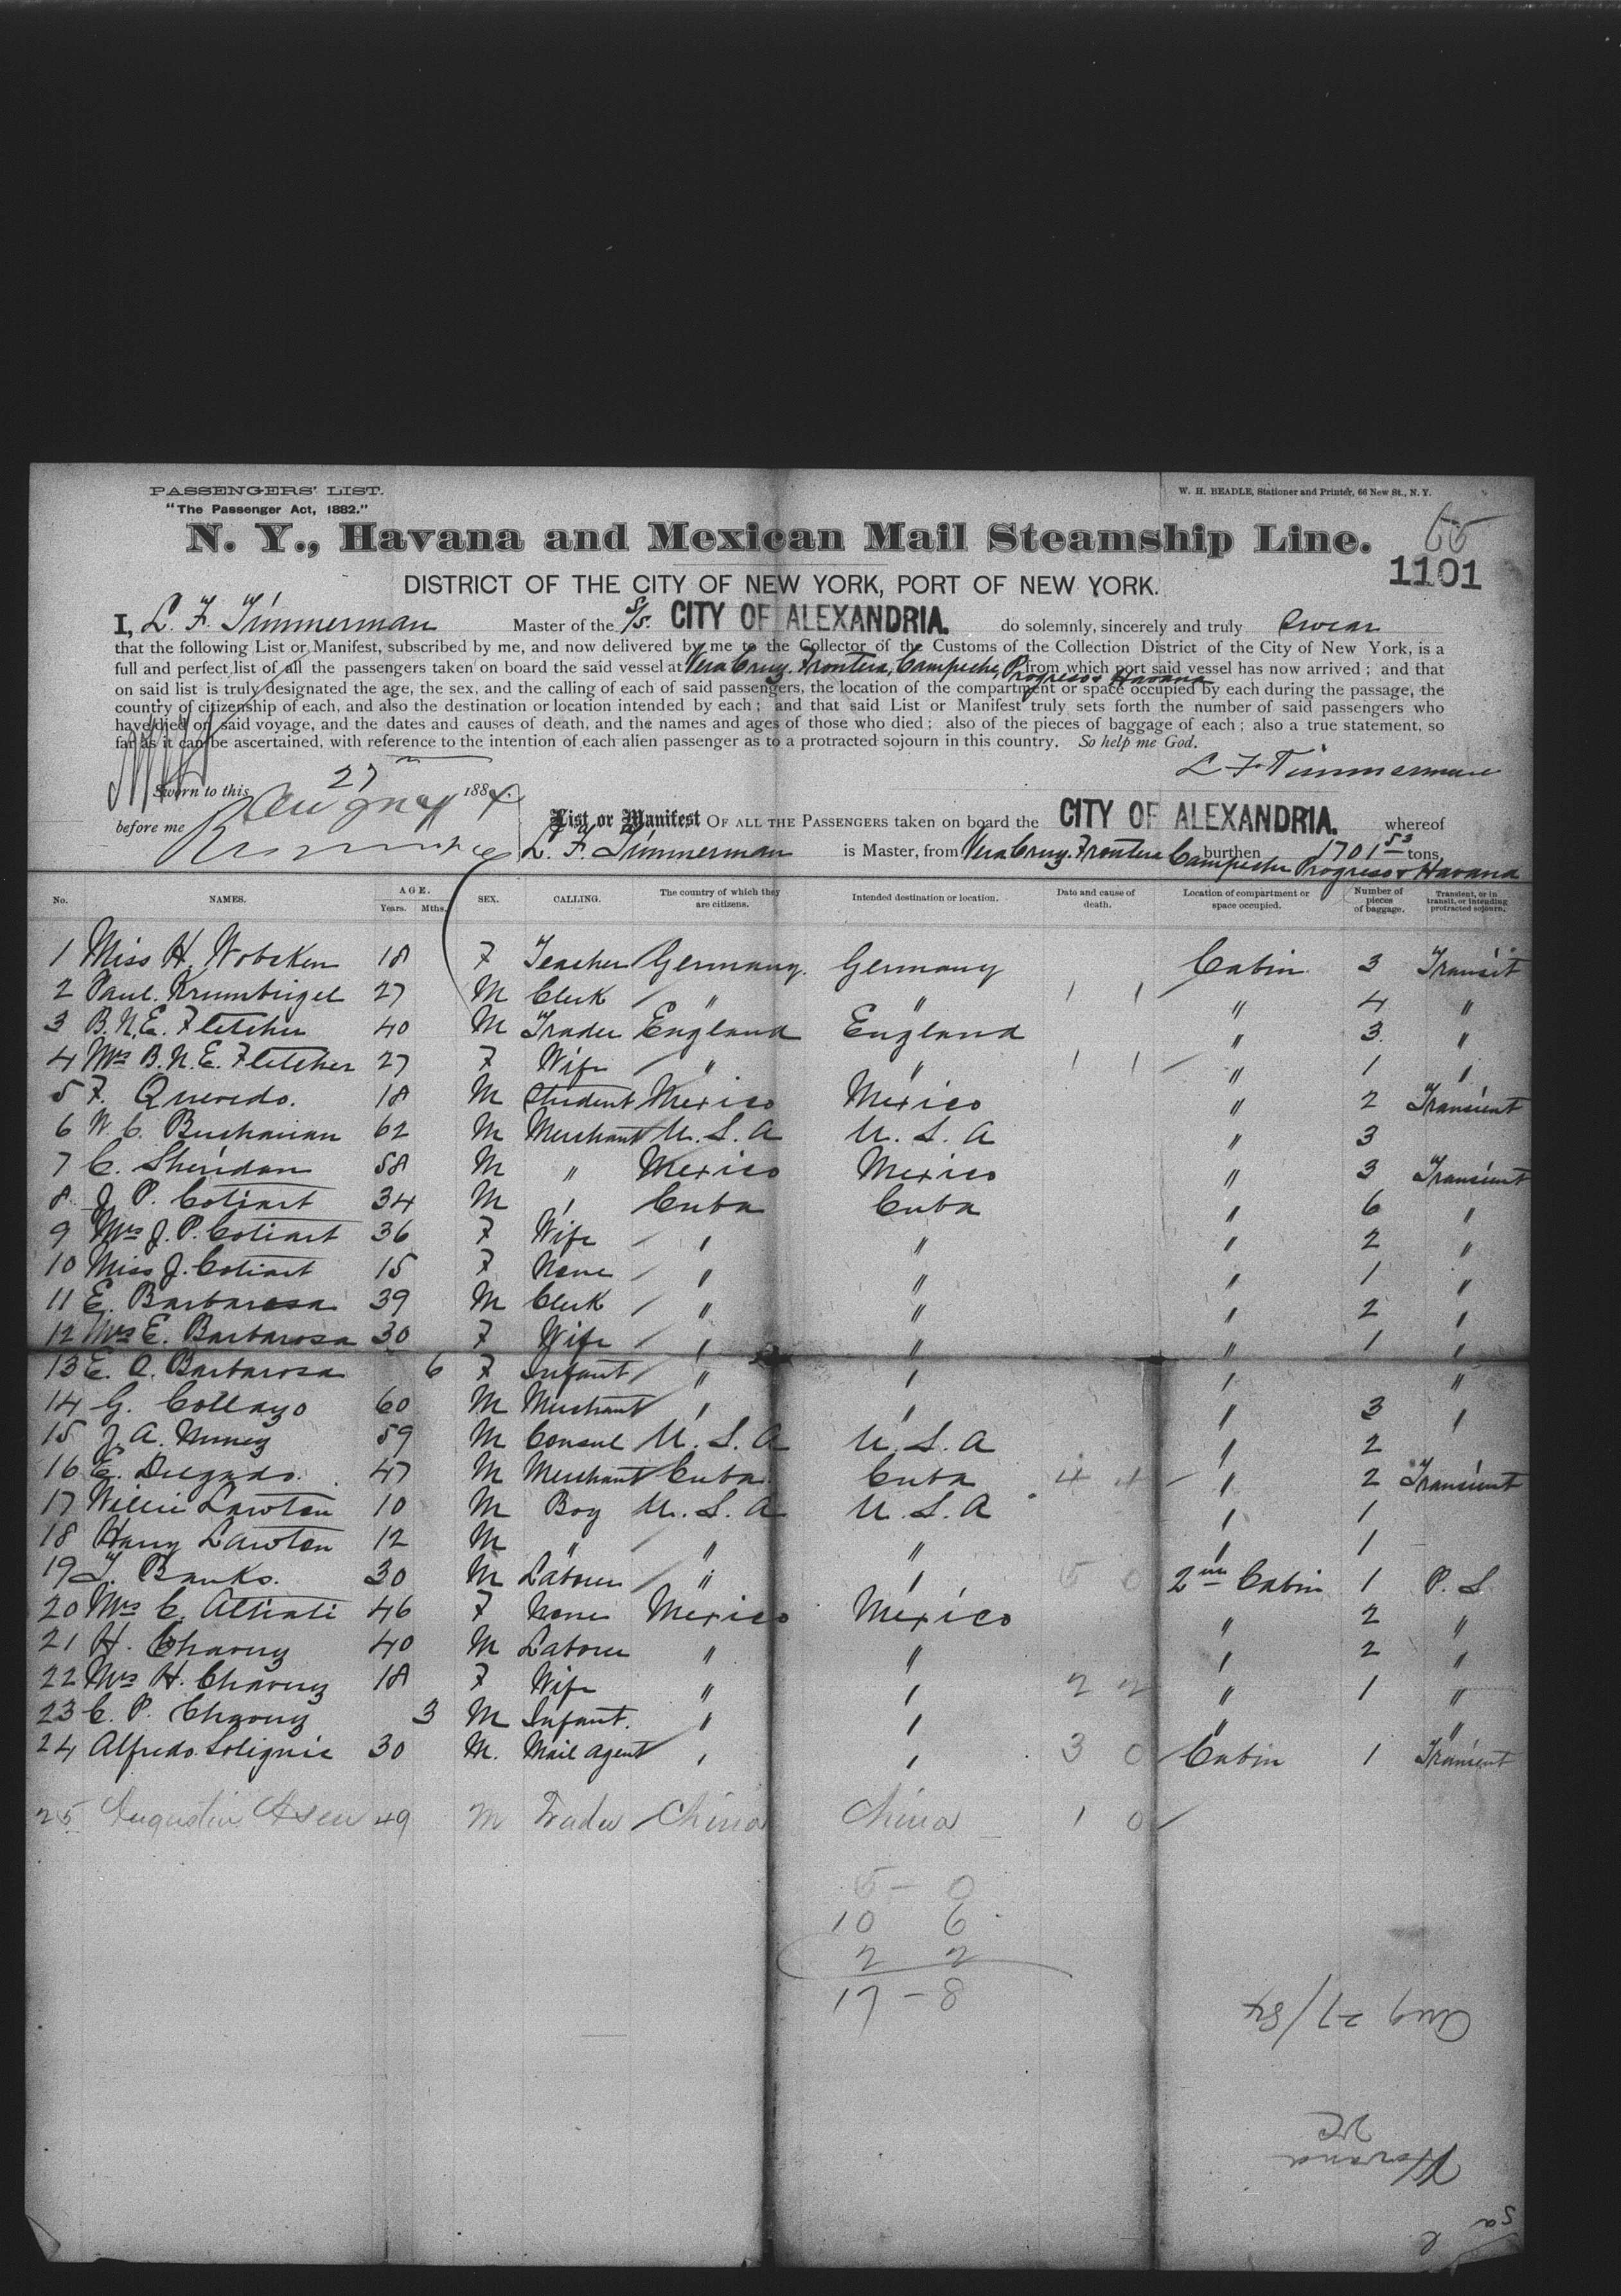 PASSENGERS' LIST.
"The Passenger Act, 1882."
W. H. BEADLE, Stationer and Printer, 66 New St., N. Y.
N. Y., Havana and Mexican Mail Steamship Line.
1101
DISTRICT OF THE CITY OF NEW YORK, PORT OF NEW YORK.
I, L. F. Timmerman Master of the S/S. CITY OF ALEXANDRIA. do solemnly, sincerely and truly Swear
that the following List or Manifest, subscribed by me, and now delivered by me to the Collector of the Customs of the Collection District of the City of New York, is a
full and perfect list of all the passengers taken on board the said vessel at Vera Cruz. Frontera, Campeche, Progreso & Havana from which port said vessel has now arrived; and that
on said list is truly designated the age, the sex, and the calling of each of said passengers, the location of the compartment or space occupied by each during the passage, the
country of citizenship of each, and also the destination or location intended by each; and that said List or Manifest truly sets forth the number of said passengers who
have died on said voyage, and the dates and causes of death, and the names and ages of those who died; also of the pieces of baggage of each; also a true statement, so
far as it can be ascertained, with reference to the intention of each alien passenger as to a protracted sojourn in this country. So help me God.
L F Timmerman
Sworn to this 27 August 1884.
before me
List or Manifest OF ALL THE PASSENGERS taken on board the CITY OF ALEXANDRIA. whereof
L. F. Timmerman is Master, from Vera Cruz. Frontera Campeche Progreso & Havana burthen 1701 53 tons
No. NAMES. AGE. Years. Mths. SEX. CALLING. The country of which they are citizens. Intended destination or location. Date and cause of death. Location of compartment or space occupied. Number of pieces of baggage. Transient, or in transit, or intending protracted sojourn.
1 Miss H. Wobeken 18 F Teacher Germany. Germany Cabin 3 Transit
2 Paul. Krumbiegel 27 M Clerk " " 1 1 " 4 "
3 B. N. E. Fletcher 40 M Trader England England " 3 "
4 Mrs B. N. E. Fletcher 27 F Wife " " 1 1 " 1 "
5 F. Quevedo. 18 M Student Mexico Mexico " 2 Transient
6 W. C. Buchanan 62 M Merchant U. S. A U. S. A " 3
7 C. Sheridan 58 M " Mexico Mexico " 3 Transient
8 J. P. Cotiart 34 M " Cuba Cuba " 6 "
9 Mrs J. P. Cotiart 36 F Wife " " " 2 "
10 Miss J. Cotiart 15 F None " " " 1 "
11 E. Barbarosa 39 M Clerk " " " 2 "
12 Mrs E. Barbarosa 30 F Wife " " " 1 "
13 E. A. Barbarosa 6 F Infant " " " "
14 G. Collazo 60 M Merchant " " " 3 "
15 J. A. Nunez 59 M Consul U. S. A U. S. A " 2
16 E. Delgado. 47 M Merchant Cuba Cuba 4 4 " 2 Transient
17 Willie Lawton 10 M Boy U. S. A U. S. A " 1
18 Harry Lawton 12 M " " " " 1
19 T. Banks. 30 M Laborer " " 5 0 2nd Cabin 1 P. S.
20 Mrs C. Altiati 46 F None Mexico Mexico " 2 "
21 H. Chavez 40 M Laborer " " " 2 "
22 Mrs H. Chavez 18 F Wife " " 2 2 " 1 "
23 C. P. Chavez 3 M Infant. " " " "
24 Alfredo Solignie 30 M. Mail Agent " " 3 0 Cabin 1 Transient
25 Augustin Asen 49 M Trader China China 1 0
5 - 0
10 6
2 2
17 - 8
Aug 27/84
Havana